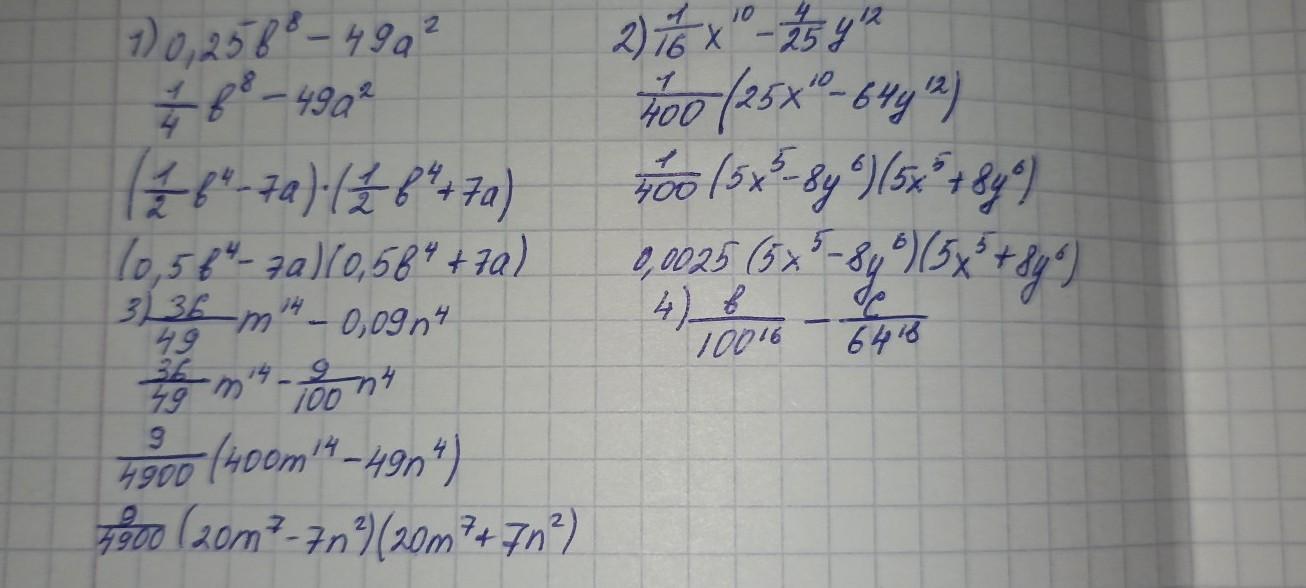 1) 0,25b⁸ − 49a²
1/4 b⁸ − 49a²
(1/2 b⁴ − 7a)·(1/2 b⁴ + 7a)
(0,5b⁴ − 7a)(0,5b⁴ + 7a)
3) 36/49 m¹⁴ − 0,09n⁴
36/49 m¹⁴ − 9/100 n⁴
9/4900 (400m¹⁴ − 49n⁴)
9/4900 (20m⁷ − 7n²)(20m⁷ + 7n²)
2) 1/16 x¹⁰ − 4/25 y¹²
1/400 (25x¹⁰ − 64y¹²)
1/400 (5x⁵ − 8y⁶)(5x⁵ + 8y⁶)
0,0025 (5x⁵ − 8y⁶)(5x⁵ + 8y⁶)
4) b/100¹⁶ − c/64¹⁸